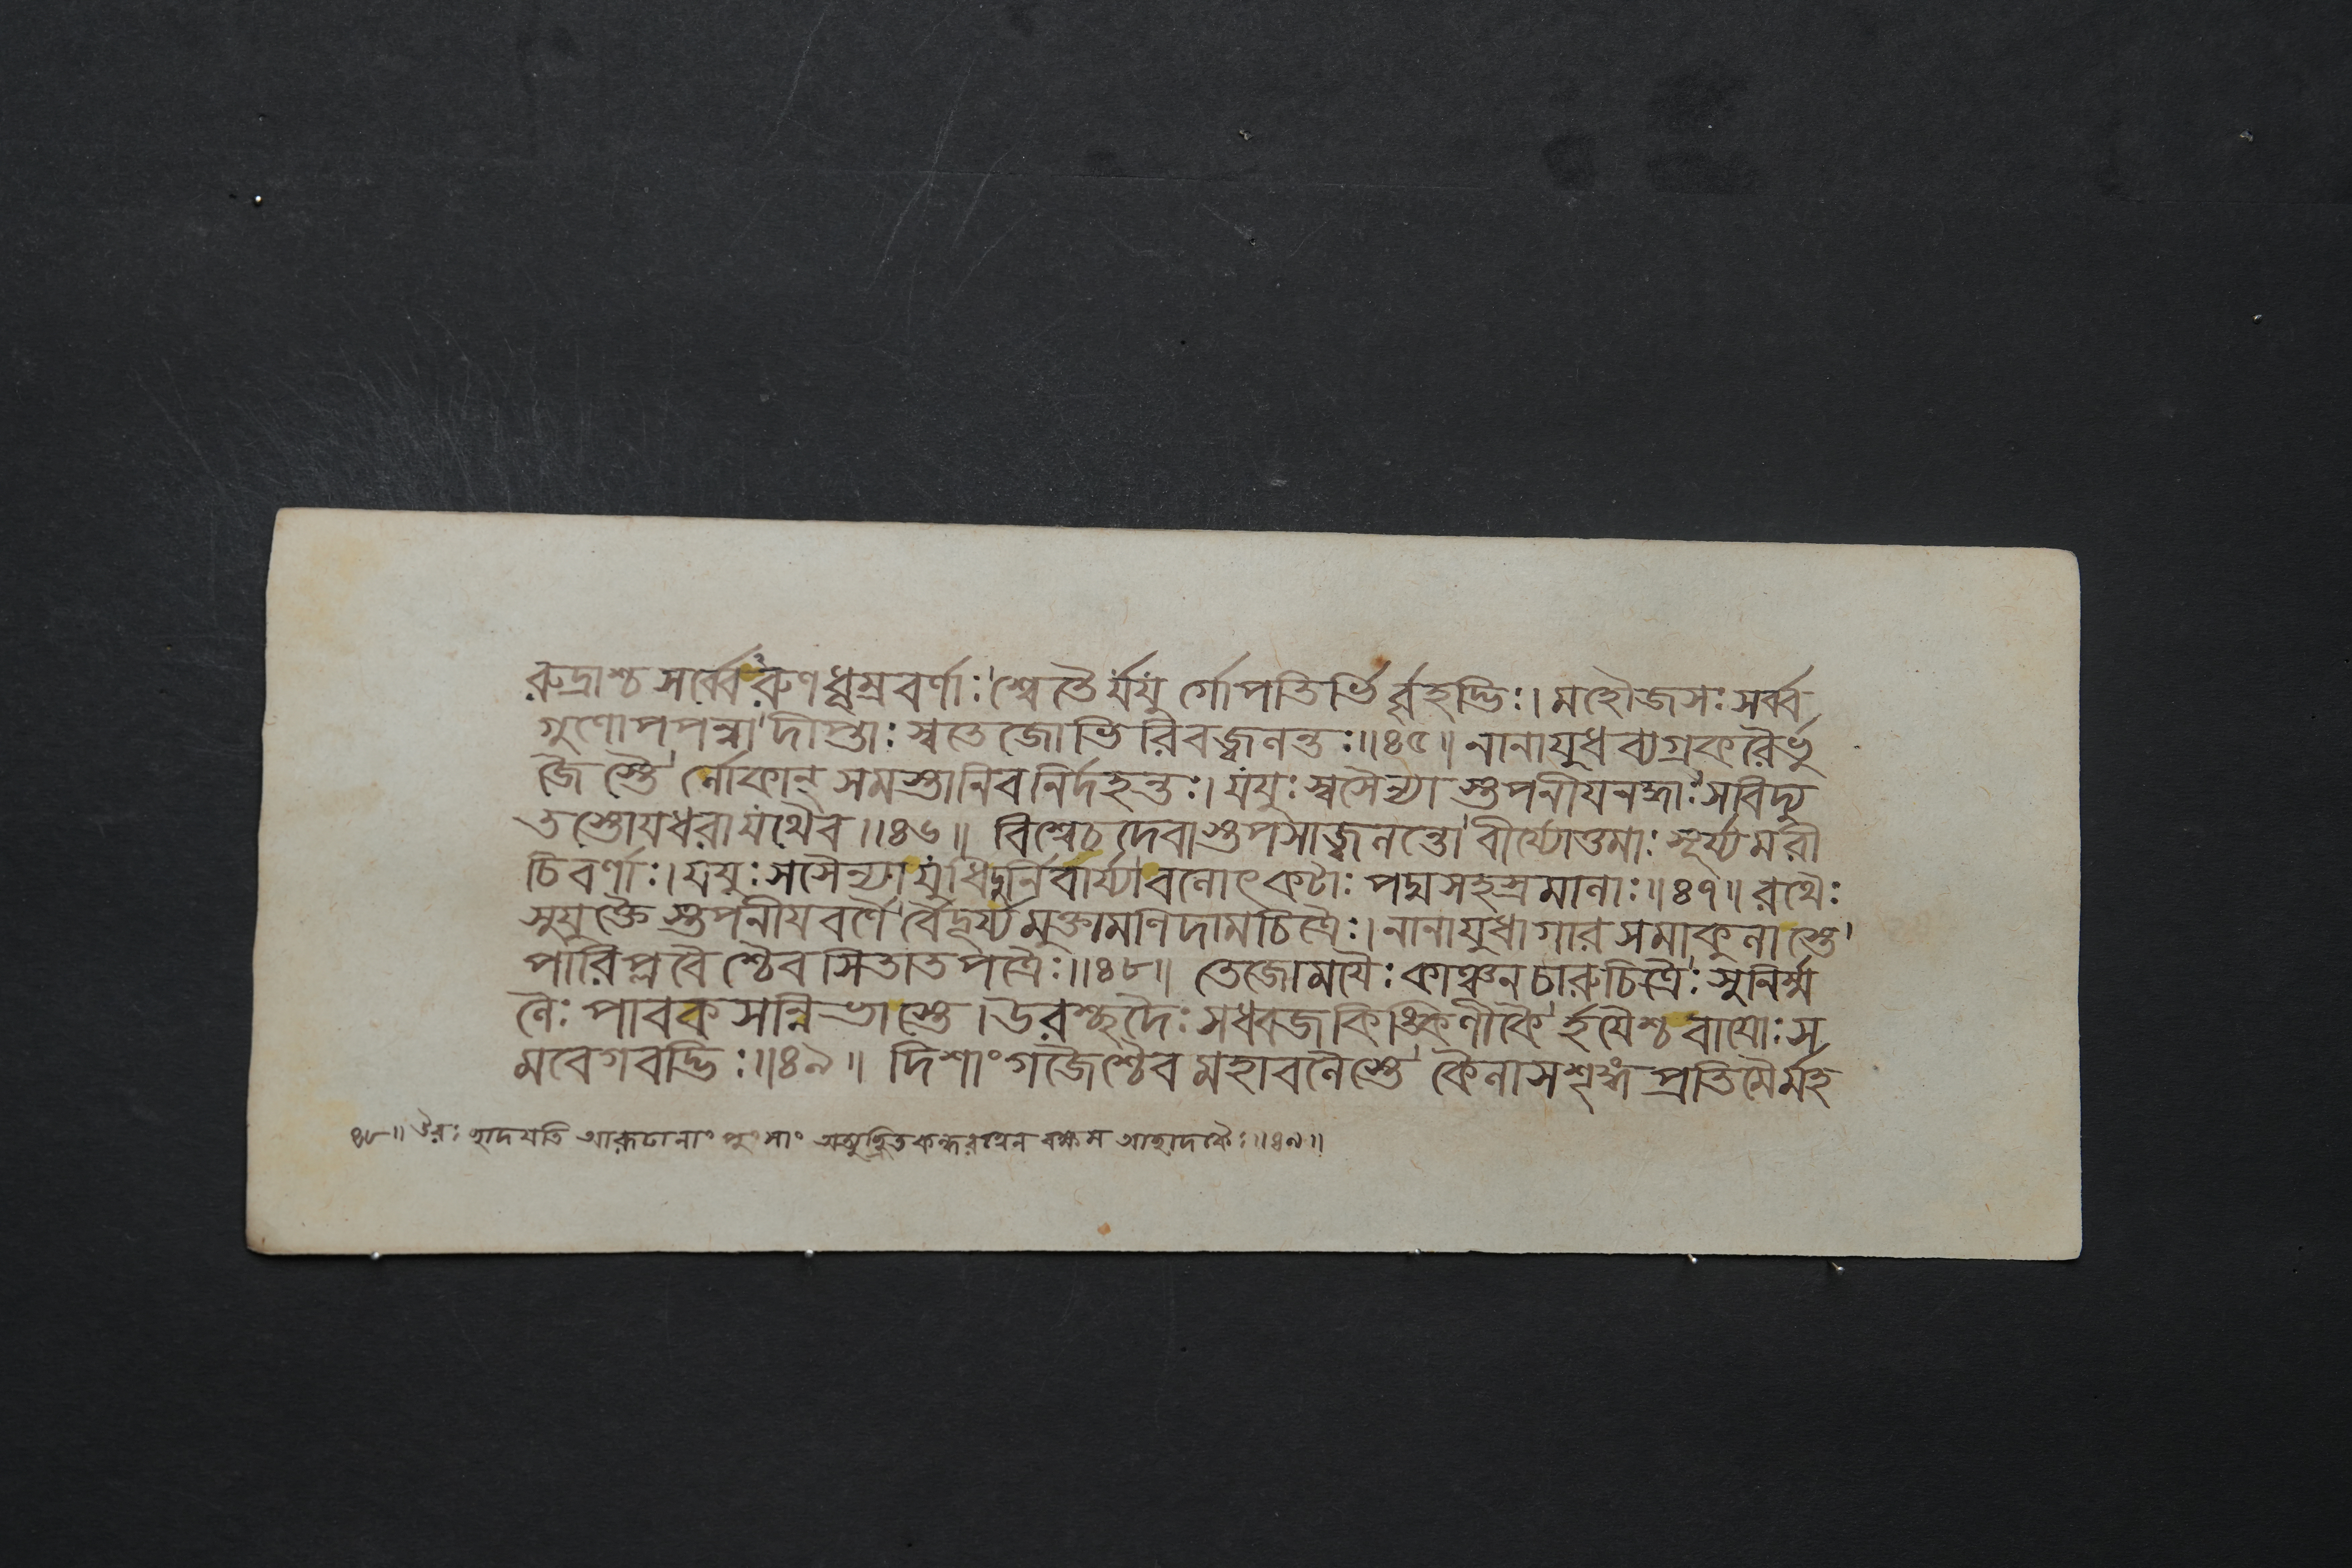 রুদ্রাশ্চ সর্ব্বেরুণধূম্রবর্ণাঃ শ্বেতৈর্যযুর্গোপতিভির্বৃহদ্ভিঃ। মহৌজসঃ সর্ব্ব
গুণোপপন্না দীপ্তাঃ স্বতেজোভিরিবজ্বলন্তঃ॥৪৫॥ নানাযুধব্যগ্রকরৈর্ভু
জৈস্তৈ র্লোকান্ সমস্তানিবনির্দহন্তঃ। যযুঃ স্বসৈন্যাস্তপনীযনদ্ধাঃ সবিদ্যু
তস্তোযধরাযথৈব॥৪৬॥ বিশ্বেচদেবাস্তপসাজ্বলন্তো বীর্য্যোত্তমাঃ সূর্য্যমরী
চিবর্ণাঃ। যযুঃ সসৈন্যাযুধিদুর্নিবার্য্যা বলোৎকটাঃ পদ্মসহস্রমালাঃ॥৪৭॥ রথৈঃ
সুযুক্তৈস্তপনীযবর্ণৈ র্বৈদূর্য্যমুক্তামণিদামচিত্রৈঃ। নানাযুধাগারসমাকুলাস্তে
পারিপ্লবৈশ্চৈবসিতাতপত্রৈঃ॥৪৮॥ তেজোমযৈঃ কাঞ্চনচারুচিত্রৈঃ সুনির্ম্ম
লৈঃ পাবকসন্নিভাস্তে। উরশ্ছদৈঃ সধ্বজকিঙ্কিণীকৈ র্হযৈশ্চবাযোঃ স
মবেগবদ্ভিঃ॥৪৯॥ দিশাংগজৈশ্চৈবমহাবলৈস্তে কৈলাসশৃঙ্গপ্রতিমৈর্মহ
৪৮॥ উরঃ হ্লাদযতি আরূঢানাং পুংসাং কন্ধরত্বেন আহ্লাদকৈঃ॥৪৯॥